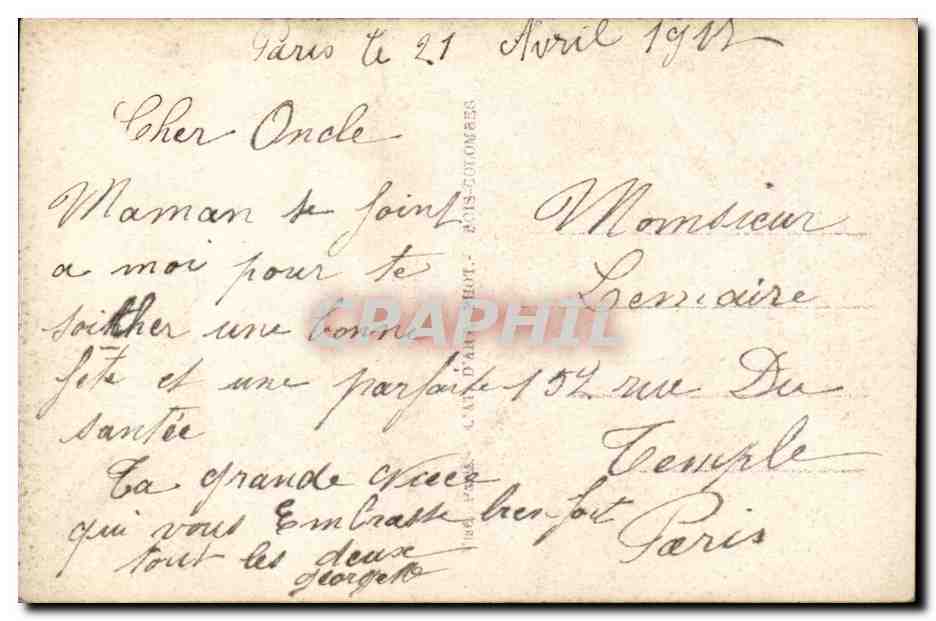 Paris le 21 Avril 1917
Cher Oncle
Maman se joint
a moi pour te
soither une bonne
fête et une parfaite
santée
Ta grande Niece
qui vous Embrasse bien fort
tout les deux
Georgette
Monsieur
Lemaire
157 rue Du
Temple
Paris
L'ART D'ART PHOT.- BOIS-COLOMBES
CRAPHIL